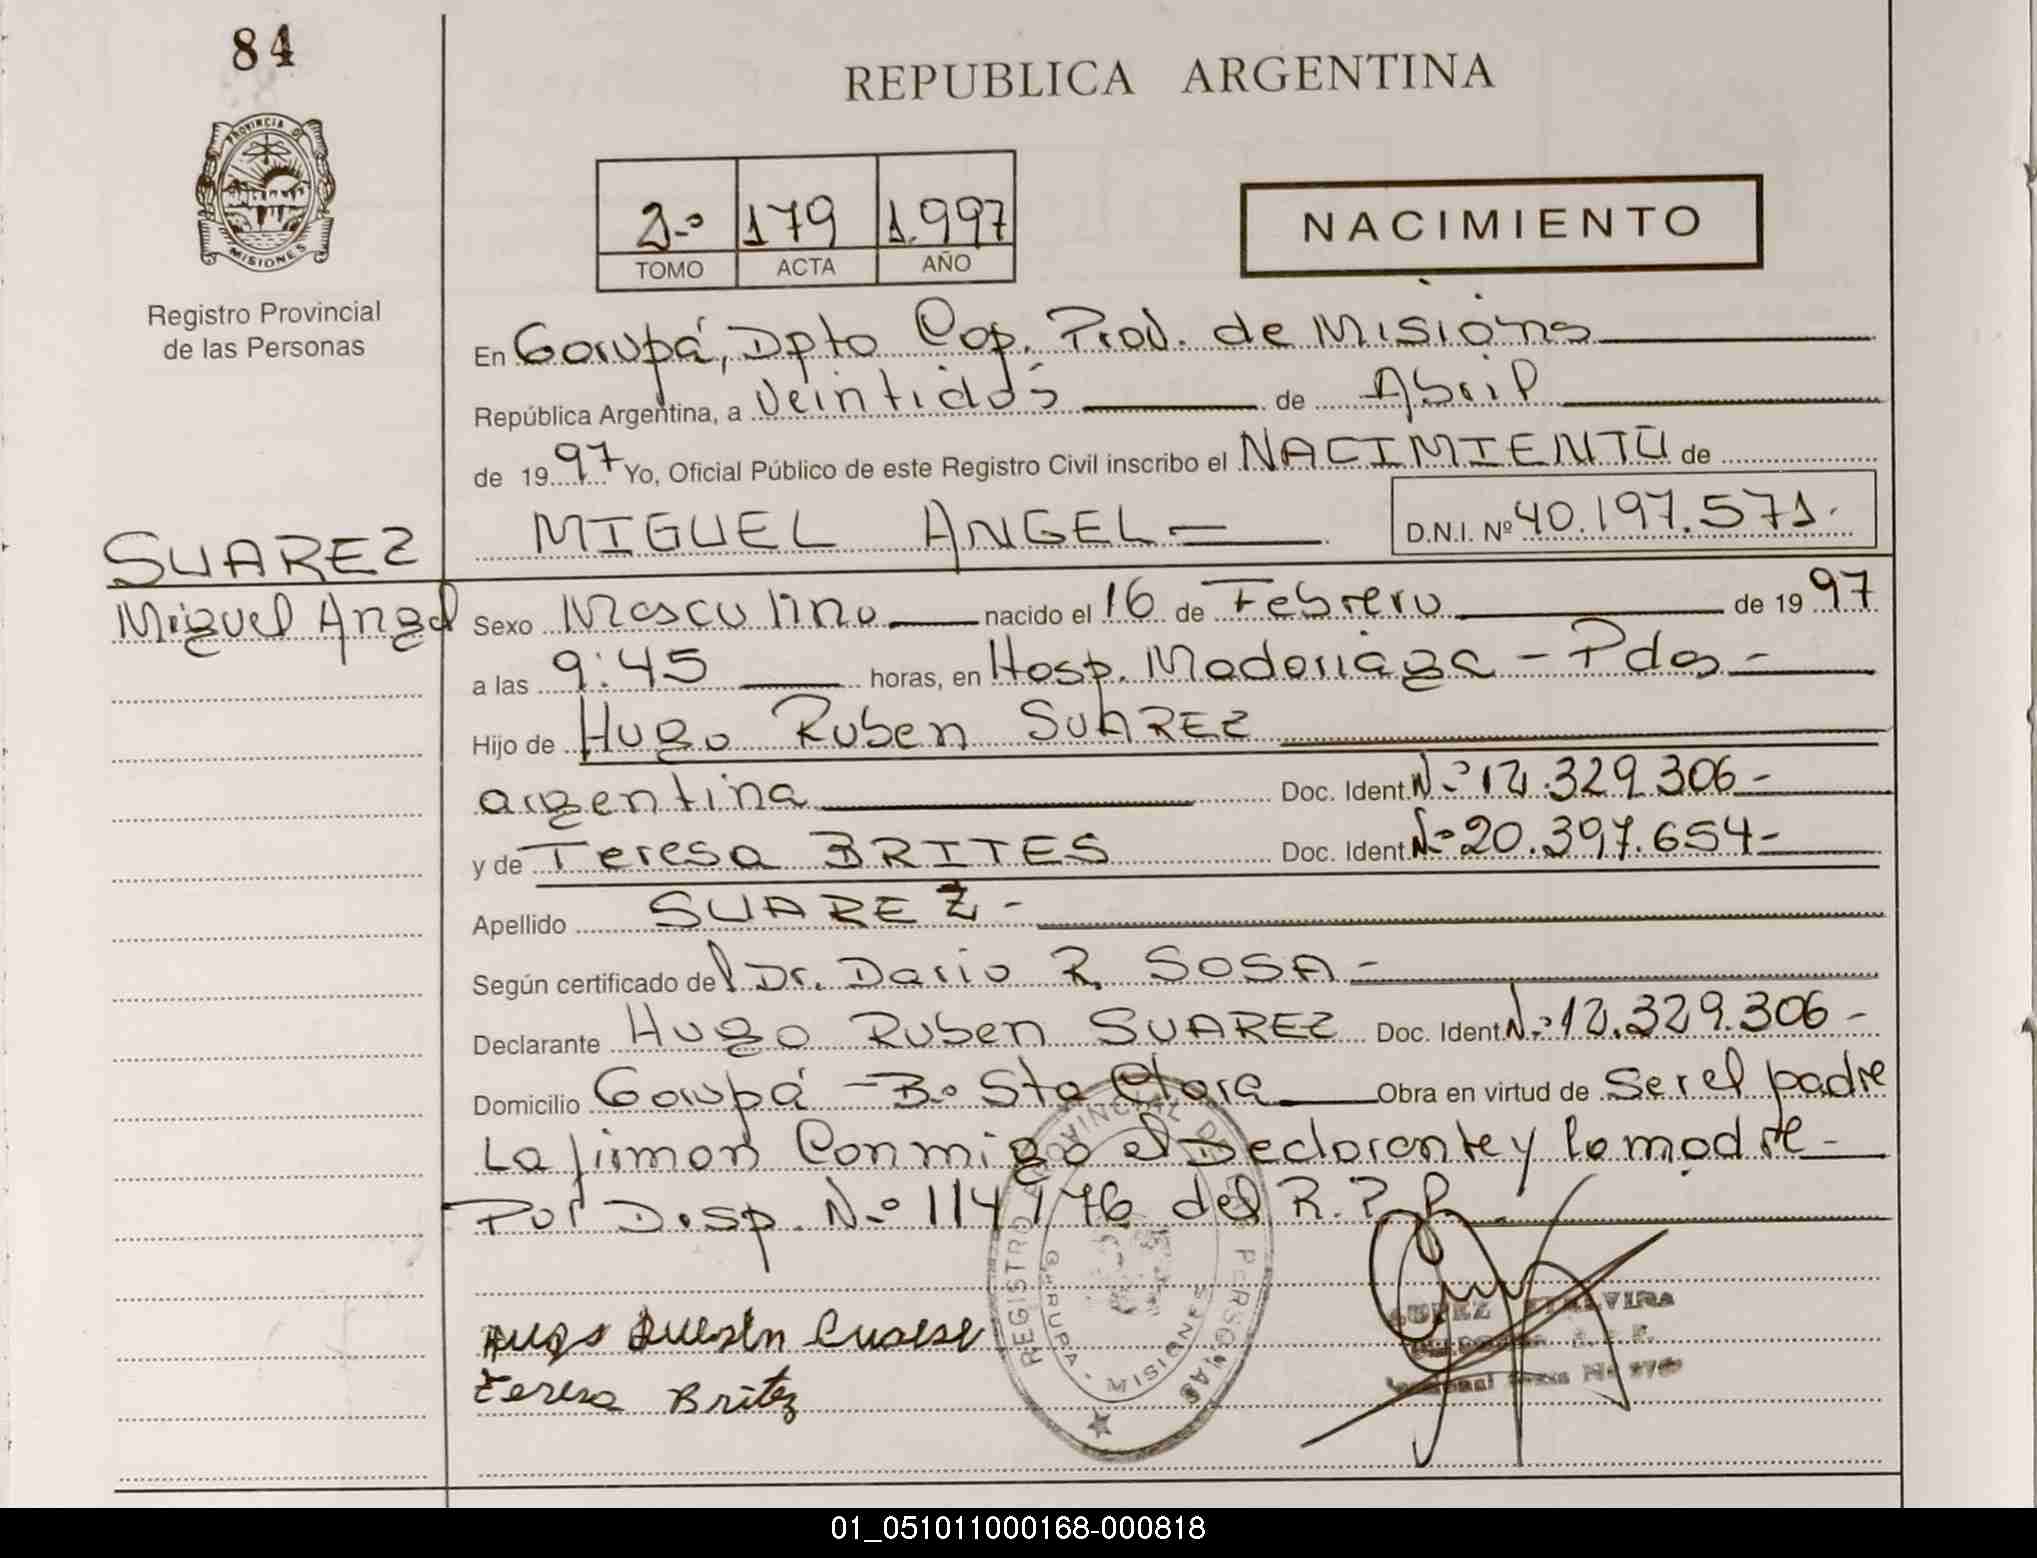 84
PROVINCIA DE
MISIONES
Registro Provincial
de las Personas
REPUBLICA ARGENTINA
2.º 179 1.997
TOMO ACTA AÑO
NACIMIENTO
En Garupá, Dpto Cap. Prov. de Misions
República Argentina, a veintidós de Abril
de 1997 Yo, Oficial Público de este Registro Civil inscribo el NACIMIENTO de
MIGUEL ANGEL D.N.I. Nº 40.197.571.
SUAREZ
Miguel Angel
Sexo Masculino nacido el 16 de Febrero de 1997
a las 9:45 horas, en Hosp. Madariaga - Pdas -
Hijo de Hugo Ruben SUAREZ
argentina Doc. Ident. N.º 12.329.306-
y de Teresa BRITES Doc. Ident. N.º 20.397.654-
Apellido SUAREZ -
Según certificado del Dr. Dario R. SOSA -
Declarante Hugo Ruben SUAREZ Doc. Ident. N.º 12.329.306 -
Domicilio Garupá - B.º Sta Clara Obra en virtud de Ser el padre
La firman Conmigo el Declarante y la madre -
Por Disp. N.º 114/76 del R.P.P.
REGISTRO PROVINCIAL DE LAS PERSONAS
GARUPA - MISIONES
Teresa Britez
01_051011000168-000818